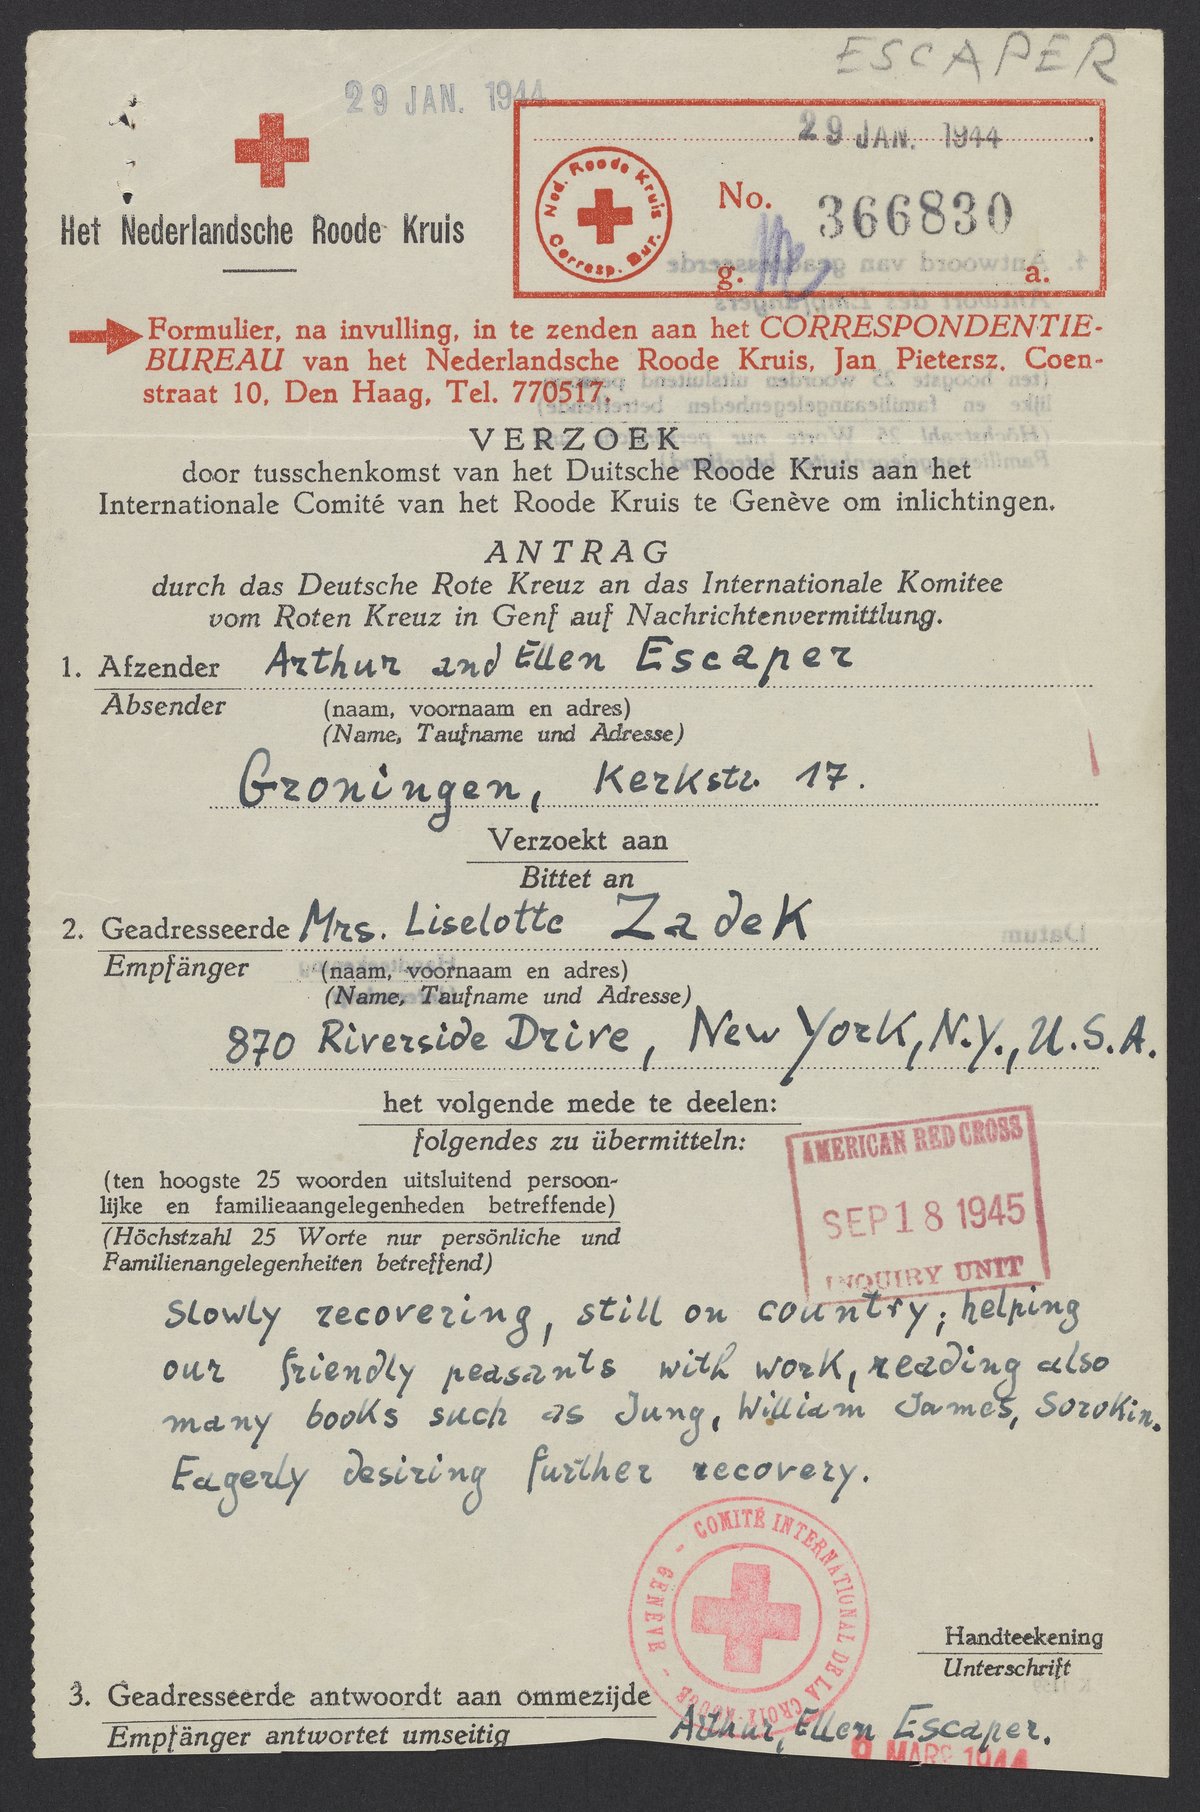 ESCAPER
29 JAN. 1944
29 JAN. 1944
Het Nederlandsche Roode Kruis
Ned. Roode Kruis
Corresp. Bur.
No. 366830
g. a.
Formulier, na invulling, in te zenden aan het CORRESPONDENTIE-
BUREAU van het Nederlandsche Roode Kruis, Jan Pietersz. Coen-
straat 10, Den Haag, Tel. 770517.
VERZOEK
door tusschenkomst van het Duitsche Roode Kruis aan het
Internationale Comité van het Roode Kruis te Genève om inlichtingen.
ANTRAG
durch das Deutsche Rote Kreuz an das Internationale Komitee
vom Roten Kreuz in Genf auf Nachrichtenvermittlung.
1. Afzender Arthur and Ellen Escaper
Absender (naam, voornaam en adres)
(Name, Taufname und Adresse)
Groningen, Kerkstr. 17.
Verzoekt aan
Bittet an
2. Geadresseerde Mrs. Liselotte Zadek
Empfänger (naam, voornaam en adres)
(Name, Taufname und Adresse)
870 Riverside Drive, New York, N.Y., U.S.A.
het volgende mede te deelen:
folgendes zu übermitteln:
(ten hoogste 25 woorden uitsluitend persoon-
lijke en familieaangelegenheden betreffende)
(Höchstzahl 25 Worte nur persönliche und
Familienangelegenheiten betreffend)
AMERICAN RED CROSS
SEP 18 1945
INQUIRY UNIT
Slowly recovering, still on country; helping
our friendly peasants with work, reading also
many books such as Jung, William James, Sorokin.
Eagerly desiring further recovery.
COMITÉ INTERNATIONAL DE LA CROIX ROUGE - GENÈVE -
Handteekening
Unterschrift
3. Geadresseerde antwoordt aan ommezijde
Empfänger antwortet umseitig
Arthur, Ellen Escaper.
9 MARS 1944